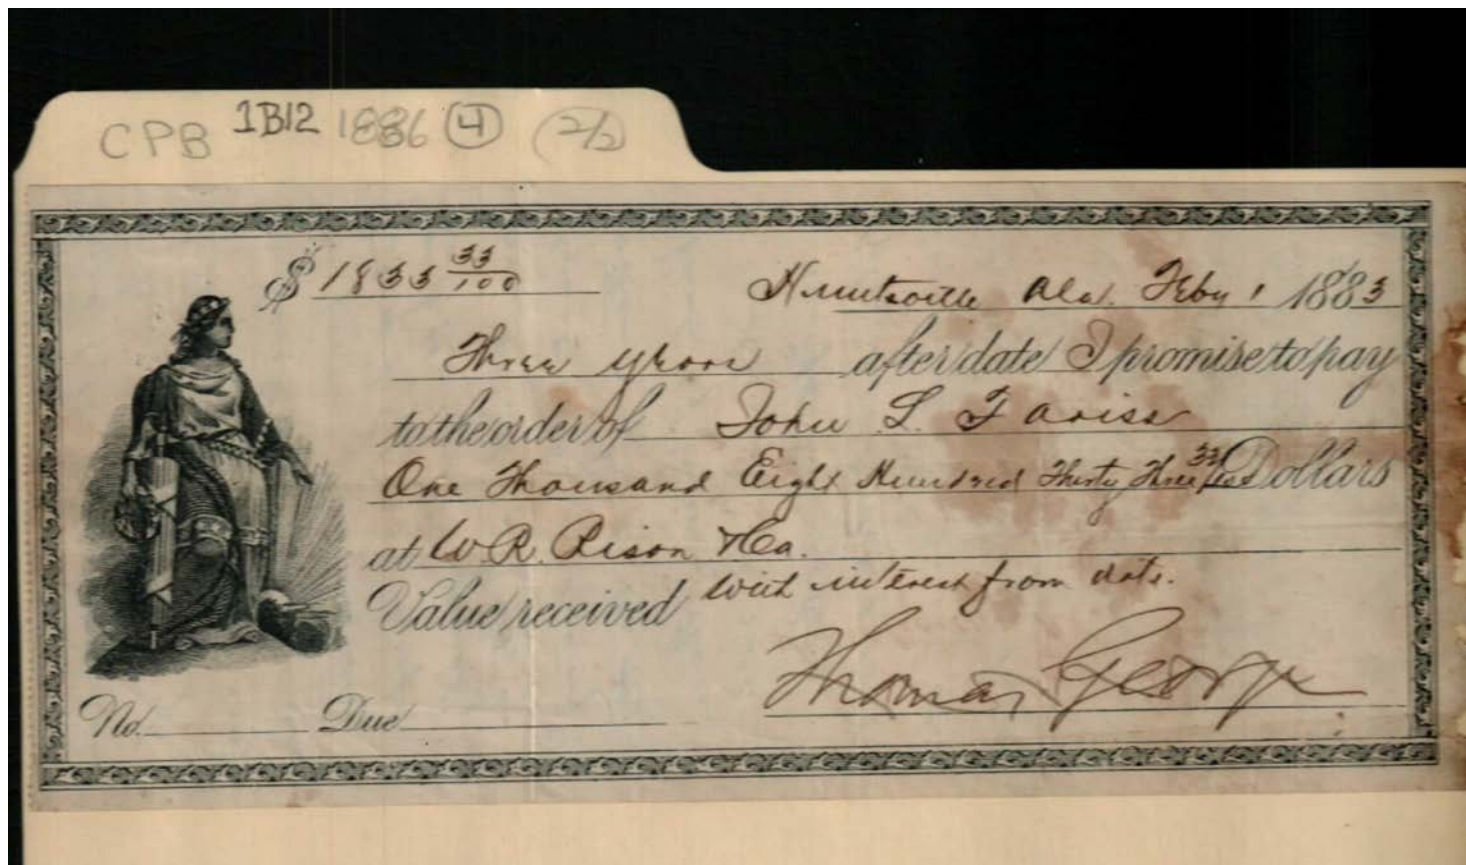 CPB 1B12 1886 4 (2/2)
$ 1833 33/100
Huntsville Ala. Feby 1 1883
Three years after date I promise to pay
to the order of John L. Fariss
One Thousand Eight Hundred Thirty Three 33/100 Dollars
at W. R. Rison & Co.
Value received with interest from date.
Thomas George
No. Due